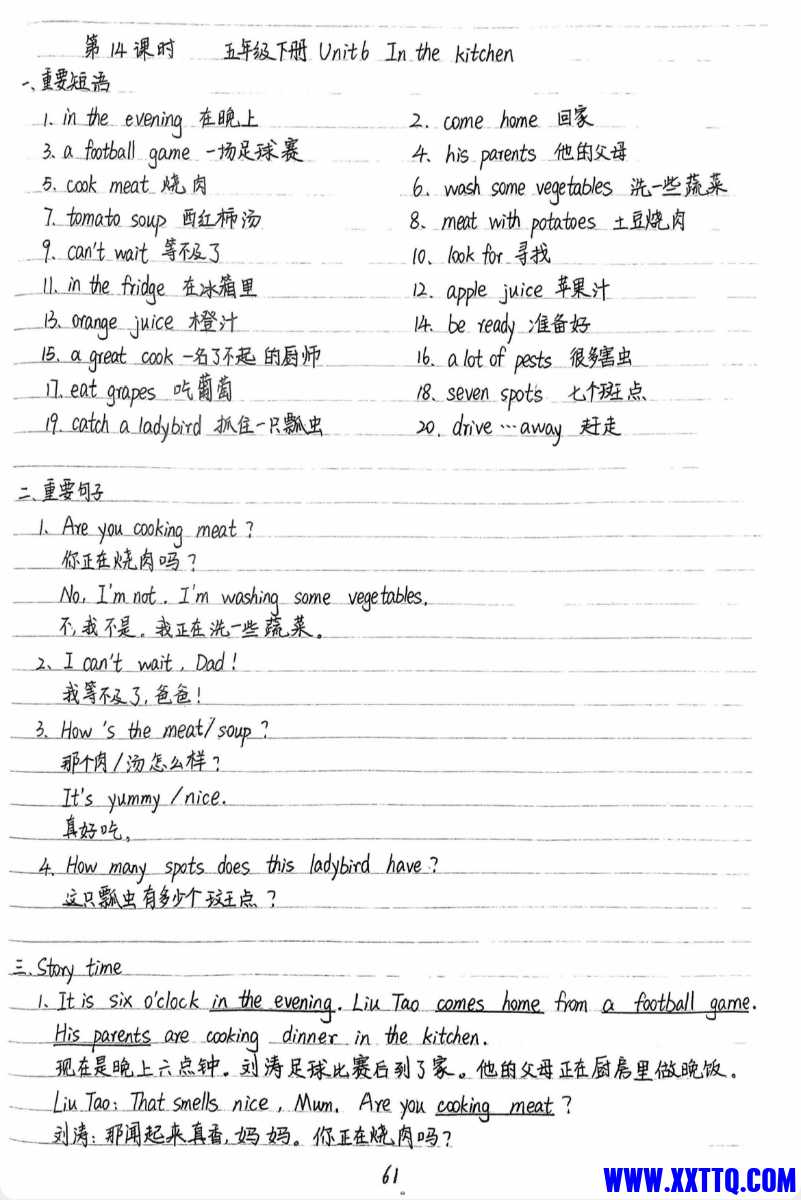 第14课时 五年级下册 Unit6 In the kitchen
一、重要短语
1. in the evening 在晚上 2. come home 回家
3. a football game 一场足球赛 4. his parents 他的父母
5. cook meat 烧肉 6. wash some vegetables 洗一些蔬菜
7. tomato soup 西红柿汤 8. meat with potatoes 土豆烧肉
9. can't wait 等不及了 10. look for 寻找
11. in the fridge 在冰箱里 12. apple juice 苹果汁
13. orange juice 橙汁 14. be ready 准备好
15. a great cook 一名了不起的厨师 16. a lot of pests 很多害虫
17. eat grapes 吃葡萄 18. seven spots 七个斑点
19. catch a ladybird 抓住一只瓢虫 20. drive…away 赶走
二、重要句子
1. Are you cooking meat?
你正在烧肉吗?
No, I'm not. I'm washing some vegetables.
不,我不是。我正在洗一些蔬菜。
2. I can't wait, Dad!
我等不及了,爸爸!
3. How's the meat/soup?
那个肉/汤怎么样?
It's yummy/nice.
真好吃。
4. How many spots does this ladybird have?
这只瓢虫有多少个斑点?
三、Story time
1. It is six o'clock in the evening. Liu Tao comes home from a football game.
His parents are cooking dinner in the kitchen.
现在是晚上六点钟。刘涛足球比赛后到了家。他的父母正在厨房里做晚饭。
Liu Tao: That smells nice, Mum. Are you cooking meat?
刘涛:那闻起来真香,妈妈。你正在烧肉吗?
61
WWW.XXTTQ.COM